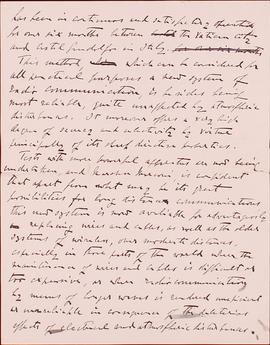 has been in continuous and satisfactory operation
for over six months between the Vatican City
and Castel Gandolfo in Italy,
This method which can be considered for
all practical purposes a new system of
radio communication is besides being
most reliable, quite unaffected by atmospheric
disturbances. It moreover offers a very high
degree of secrecy and selectivity by virtue
principally of its sharp direction properties.
Tests with more powerful apparatus are now being
undertaken, and Marchese Marconi is confident
that apart from what may be its great
possibilities for long distance communications
this new system is now available for advantageously
replacing wires and cables, as well as the older
systems of wireless, over moderate distances,
especially in those parts of the world where the
maintenance of wires and cables is difficult or
too expensive, or where radiocommunication
by means of longer waves is rendered
or unreliable in consequence of the
effects of electrical and atmospheric disturbances.